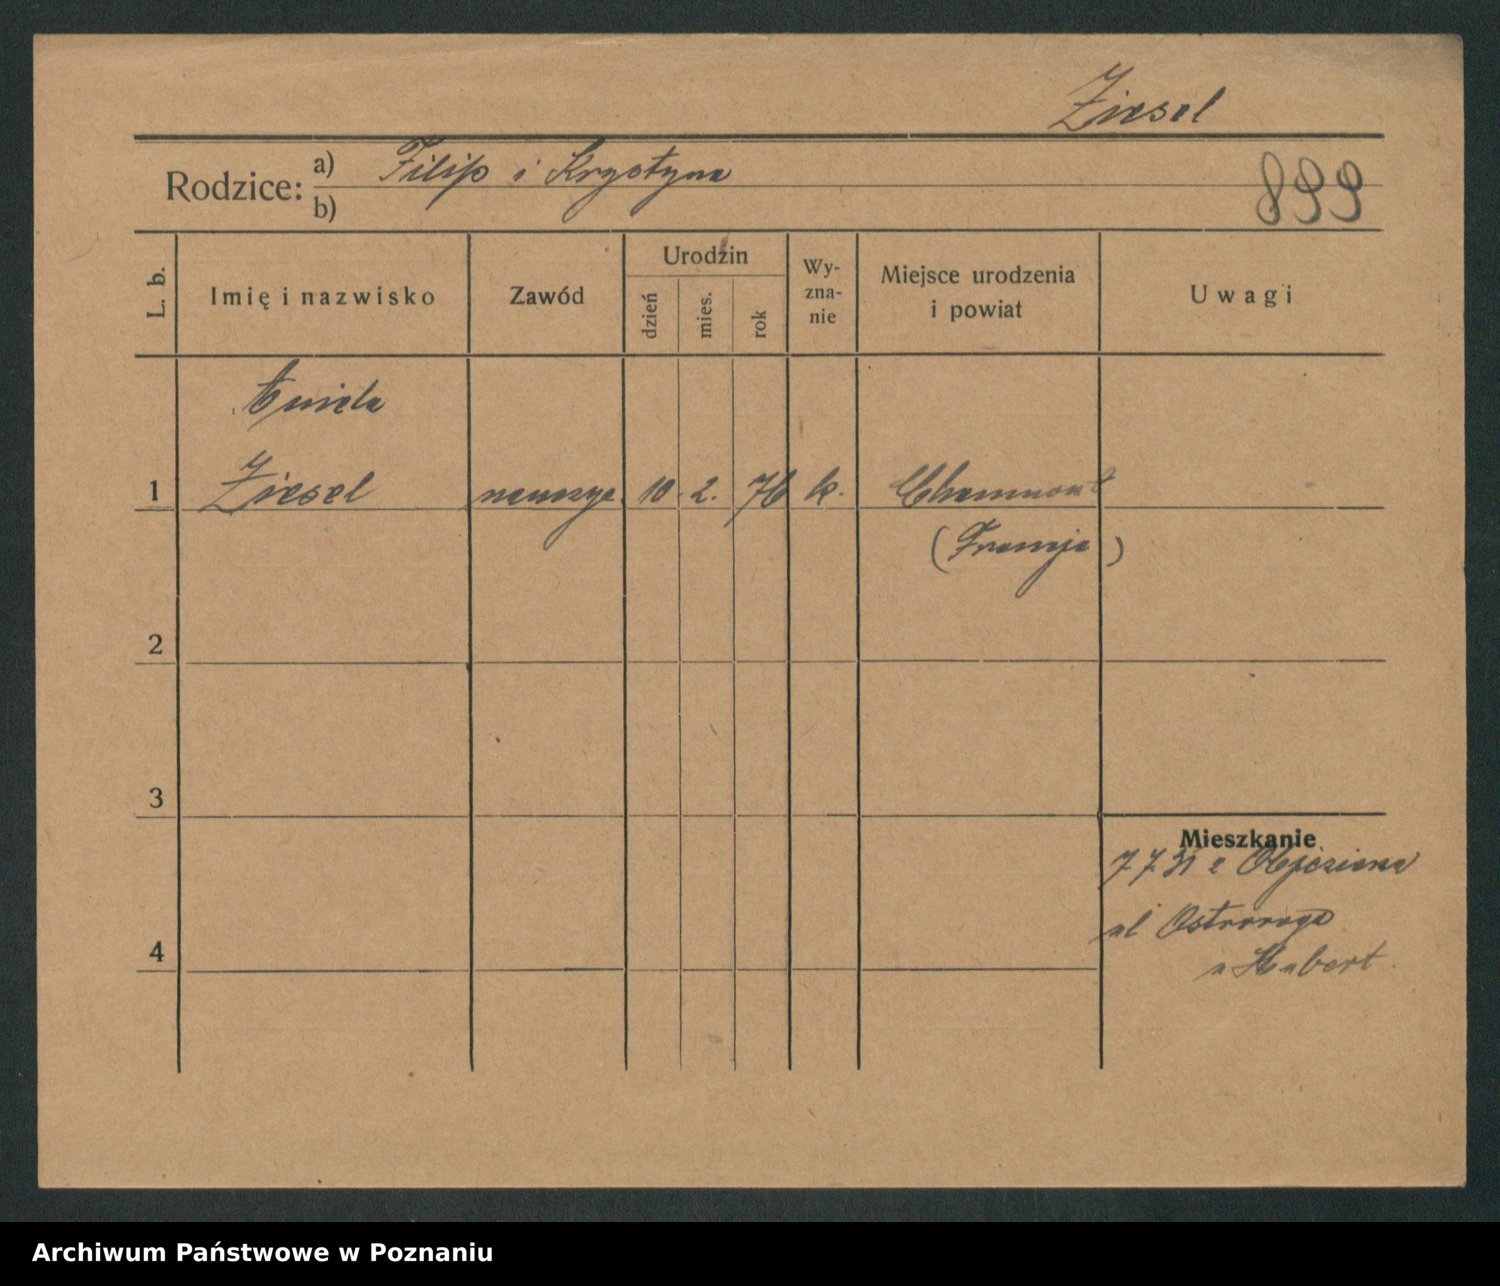 Ziesel
Rodzice: a) Filip i Krystyna
b)
899
L. b.
Imię i nazwisko
Zawód
Urodzin
dzień
mies.
rok
Wy-
zna-
nie
Miejsce urodzenia
i powiat
Uwagi
1 Ziesel nauczyc. 10. 2. 76 k. Chaumont
(Francja)
2
3
4
Mieszkanie
7 7 31 z
ul Ostroroga
u Hubert
Archiwum Państwowe w Poznaniu